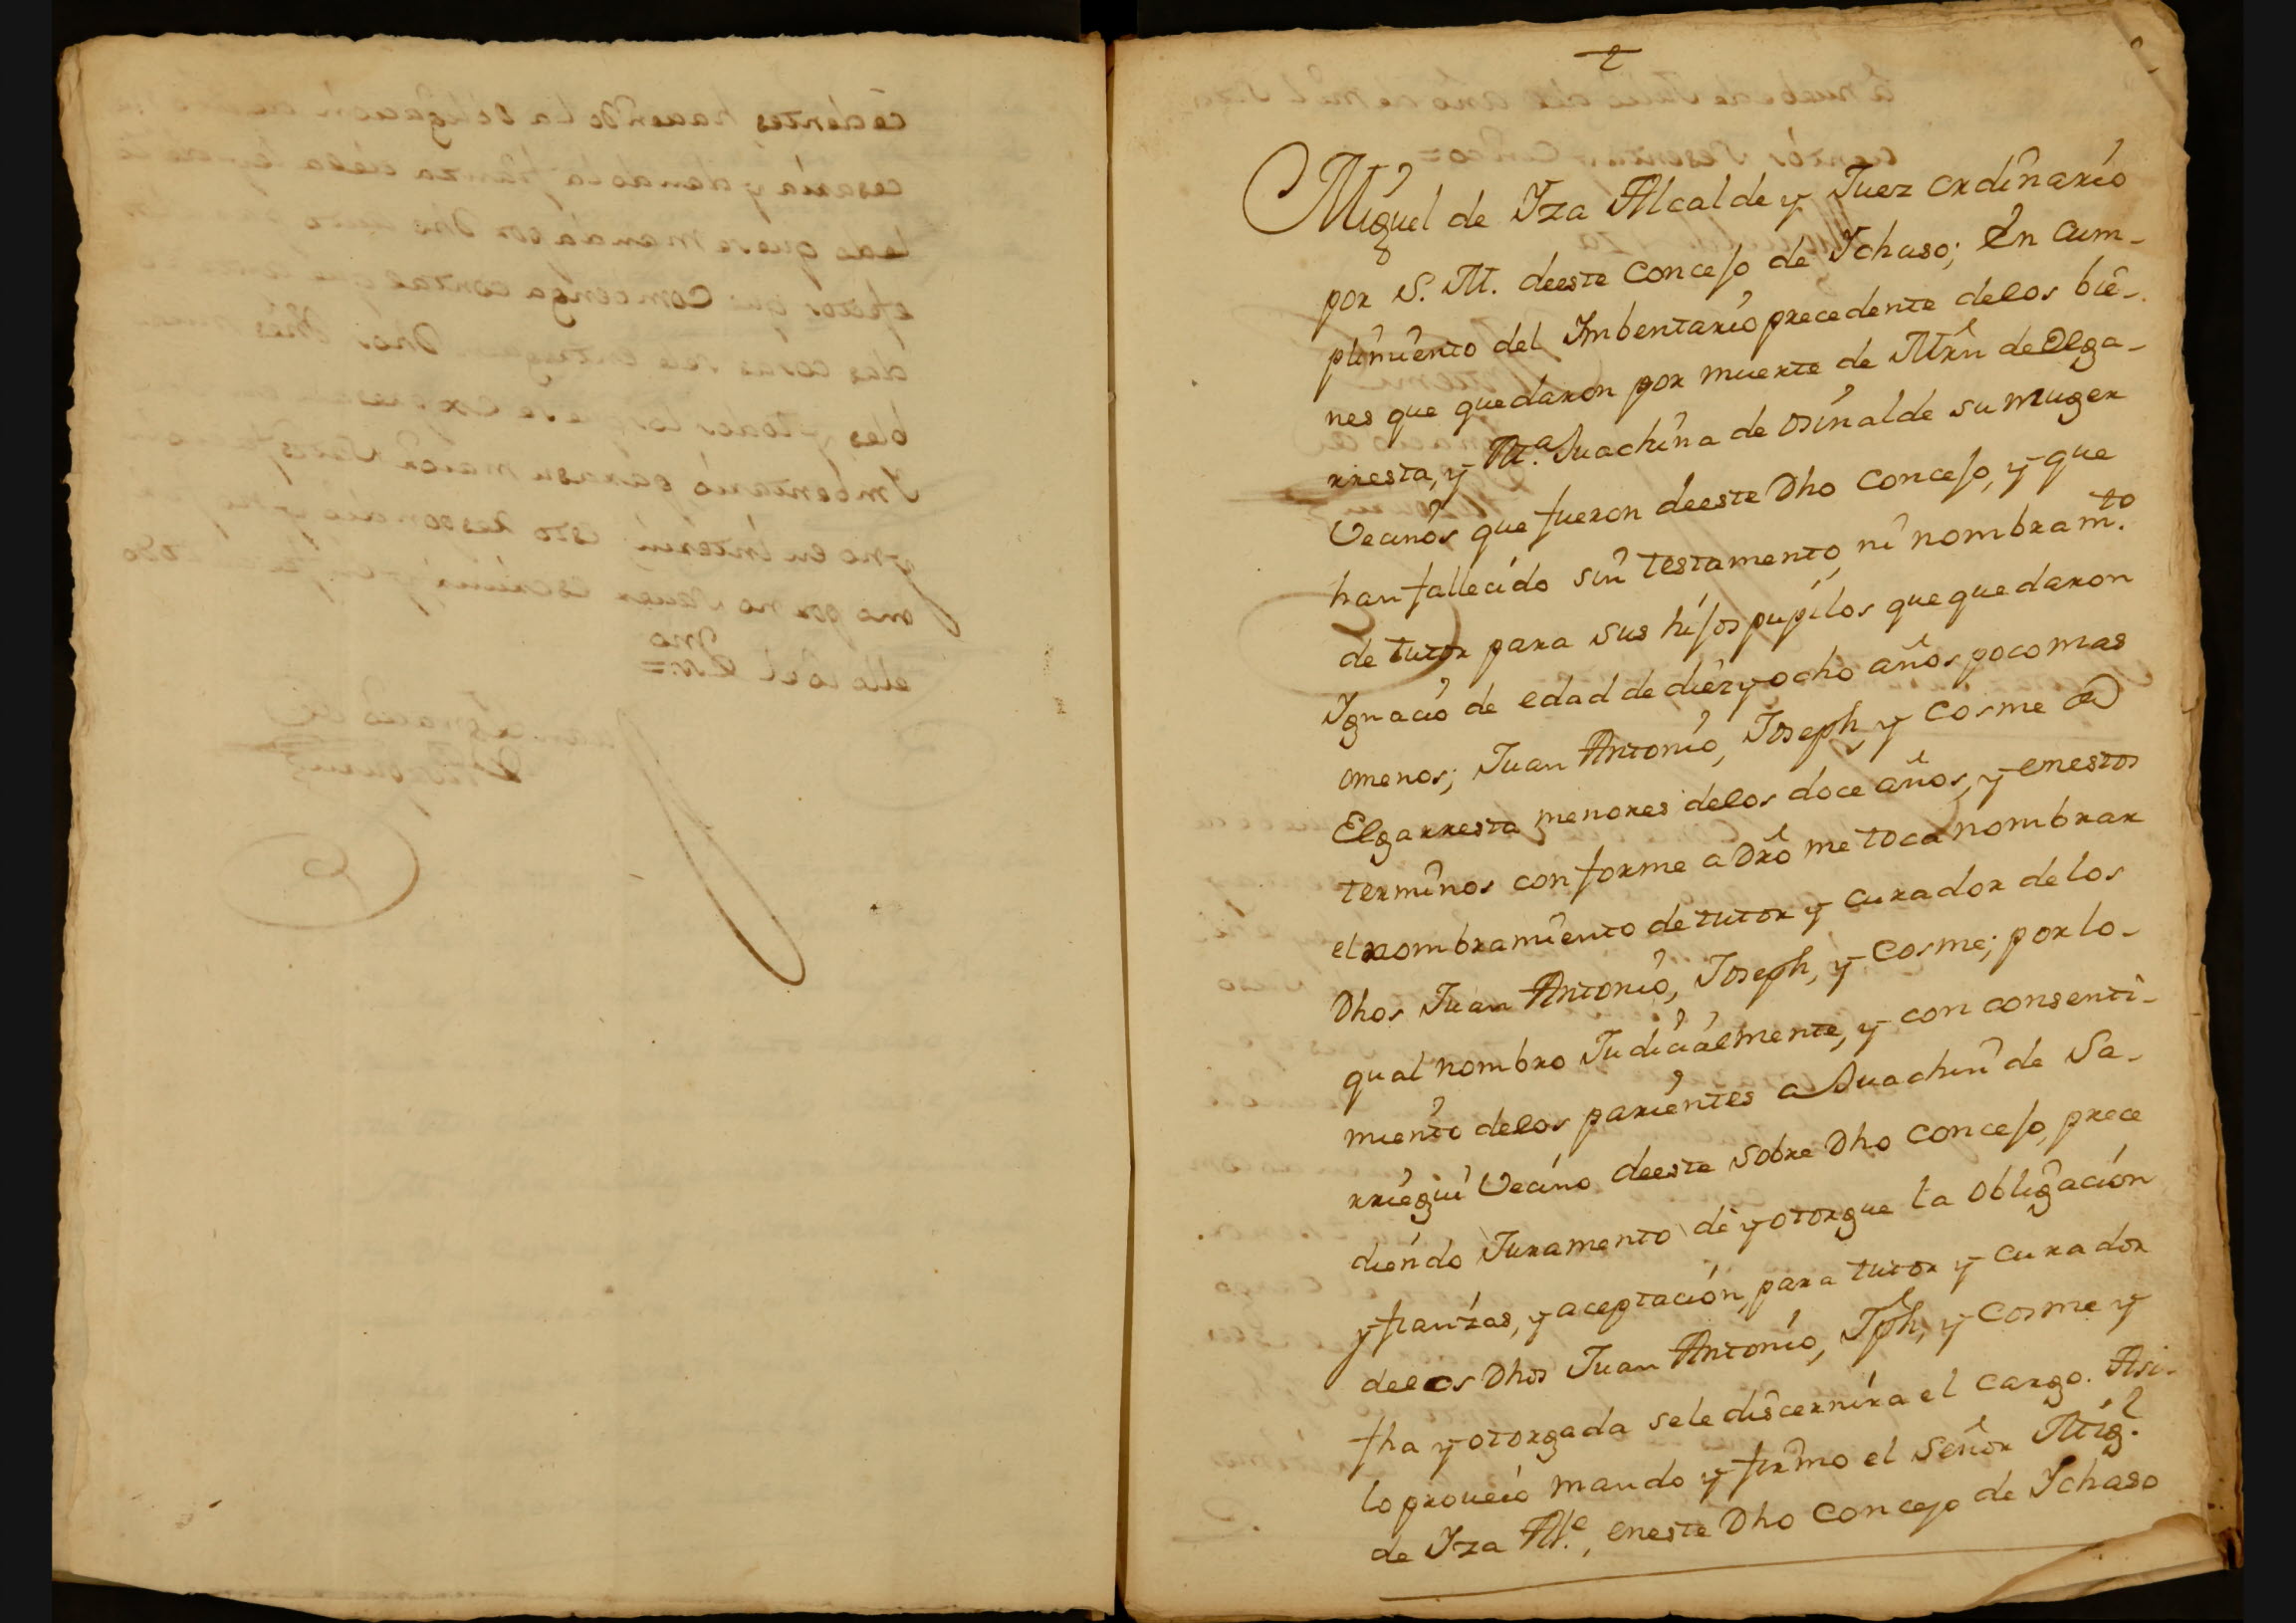 Miguel de Yza Alcalde y Juez ordinario
por S. M. deeste Concejo de Ychaso; En Cum-
plimiento del Ymbentario precedente delos bie-
nes que quedaron por muerte de Mrn de Elga-
rresta, y M.ª Juachina de Osinalde su muger
Vecinos que fueron deeste Dho Concejo, y que
han fallecido sin testamento, ni nombram.to
de tutor para sus hijos pupilos que quedaron
Ygnacio de edad de diez y ocho años poco mas
omenos; Juan Antonio, Joseph, y Cosme de
Elgarresta menores delos doce años, y enestos
terminos conforme a Dro me toca nombrar
el nombramiento de tutor y curador de los
Dhos Juan Antonio, Joseph, y Cosme; por lo-
qual nombro Judicialmente, y con consenti-
miento delos parientes a Juachin de Sa-
rriegui Vecino deeste sobre Dho Concejo, prece
diendo Juramento de y otorgue la obligacion
y fianzas, y aceptacion, para tutor y curador
delos Dhos Juan Antonio, Jph, y Cosme y
fha y otorgada sele discernira el cargo. Asi-
lo proueio mando y firmo el Señor Mig.l
de Yza Al.e, eneste Dho Concejo de Ychaso